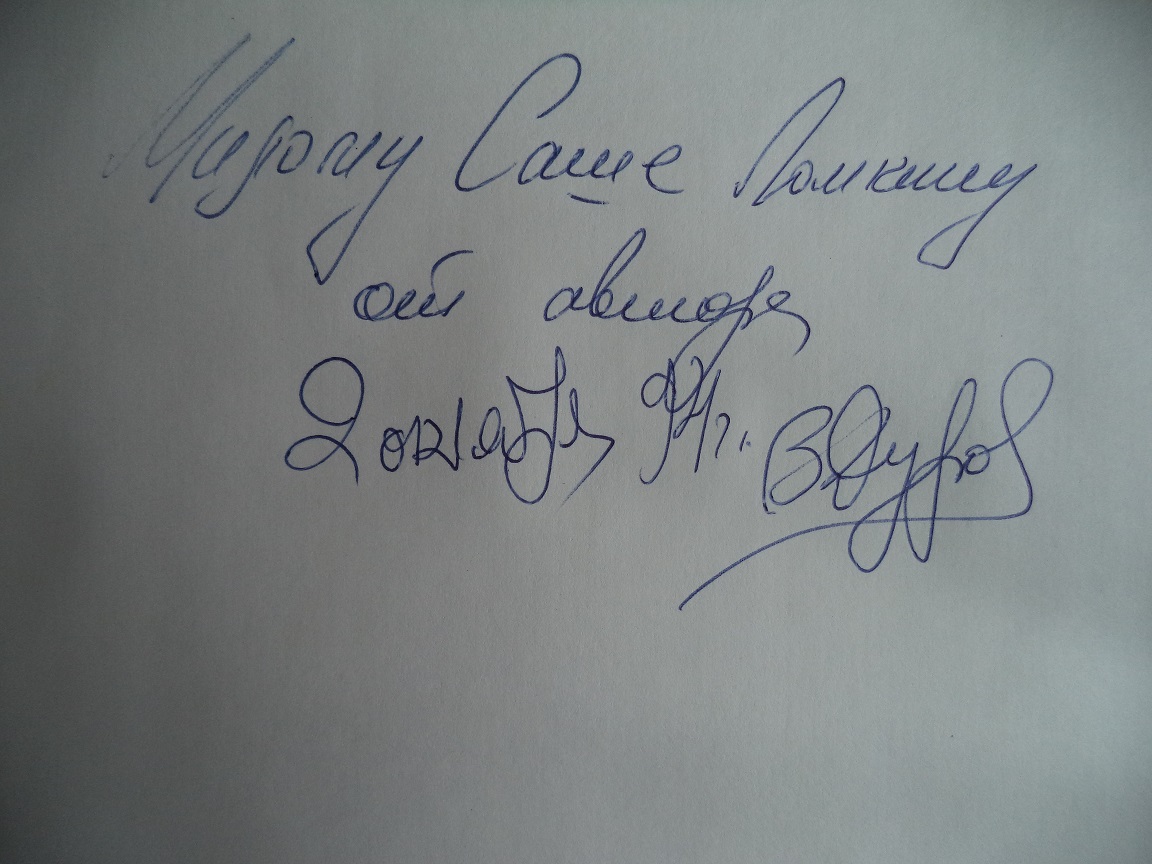 Милому Саше Ломкину
от автора
2 октября 94г. В Дуров